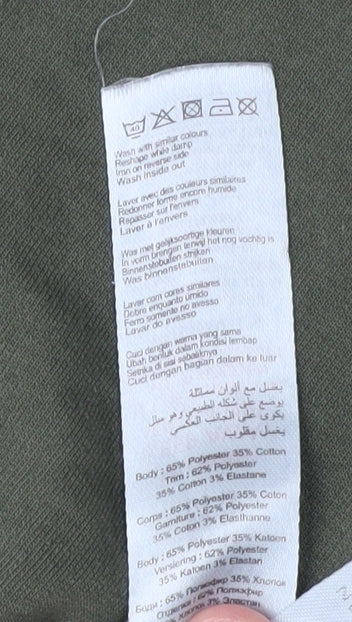 40
Wash with similar colours
Reshape while damp
Iron on reverse side
Wash inside out
Laver avec des couleurs similaires
Redonner forme encore humide
Repasser sur l'envers
Laver à l'envers
Was met gelijksoortige kleuren
In vorm brengen terwijl het nog vochtig is
Binnenstebuiten strijken
Was binnenstebuiten
Lavar com cores similares
Dobre enquanto úmido
Ferro somente no avesso
Lavar do avesso
Cuci dengan warna yang sama
Ubah bentuk dalam kondisi lembap
Setrika di sisi sebaliknya
Cuci dengan bagian dalam ke luar
يغسل مع ألوان مماثلة
يوضع على شكله الطبيعي وهو مبلل
يكوى على الجانب العكسي
يغسل مقلوب
Body : 65% Polyester 35% Cotton
Trim : 62% Polyester
35% Cotton 3% Elastane
Corps : 65% Polyester 35% Coton
Garniture : 62% Polyester
35% Coton 3% Elasthanne
Body : 65% Polyester 35% Katoen
Versiering : 62% Polyester
35% Katoen 3% Elastan
Боди : 65% Полиэфир 35% Хлопок
Отделка : 62% Полиэфир
Хлопок 3% Эластан